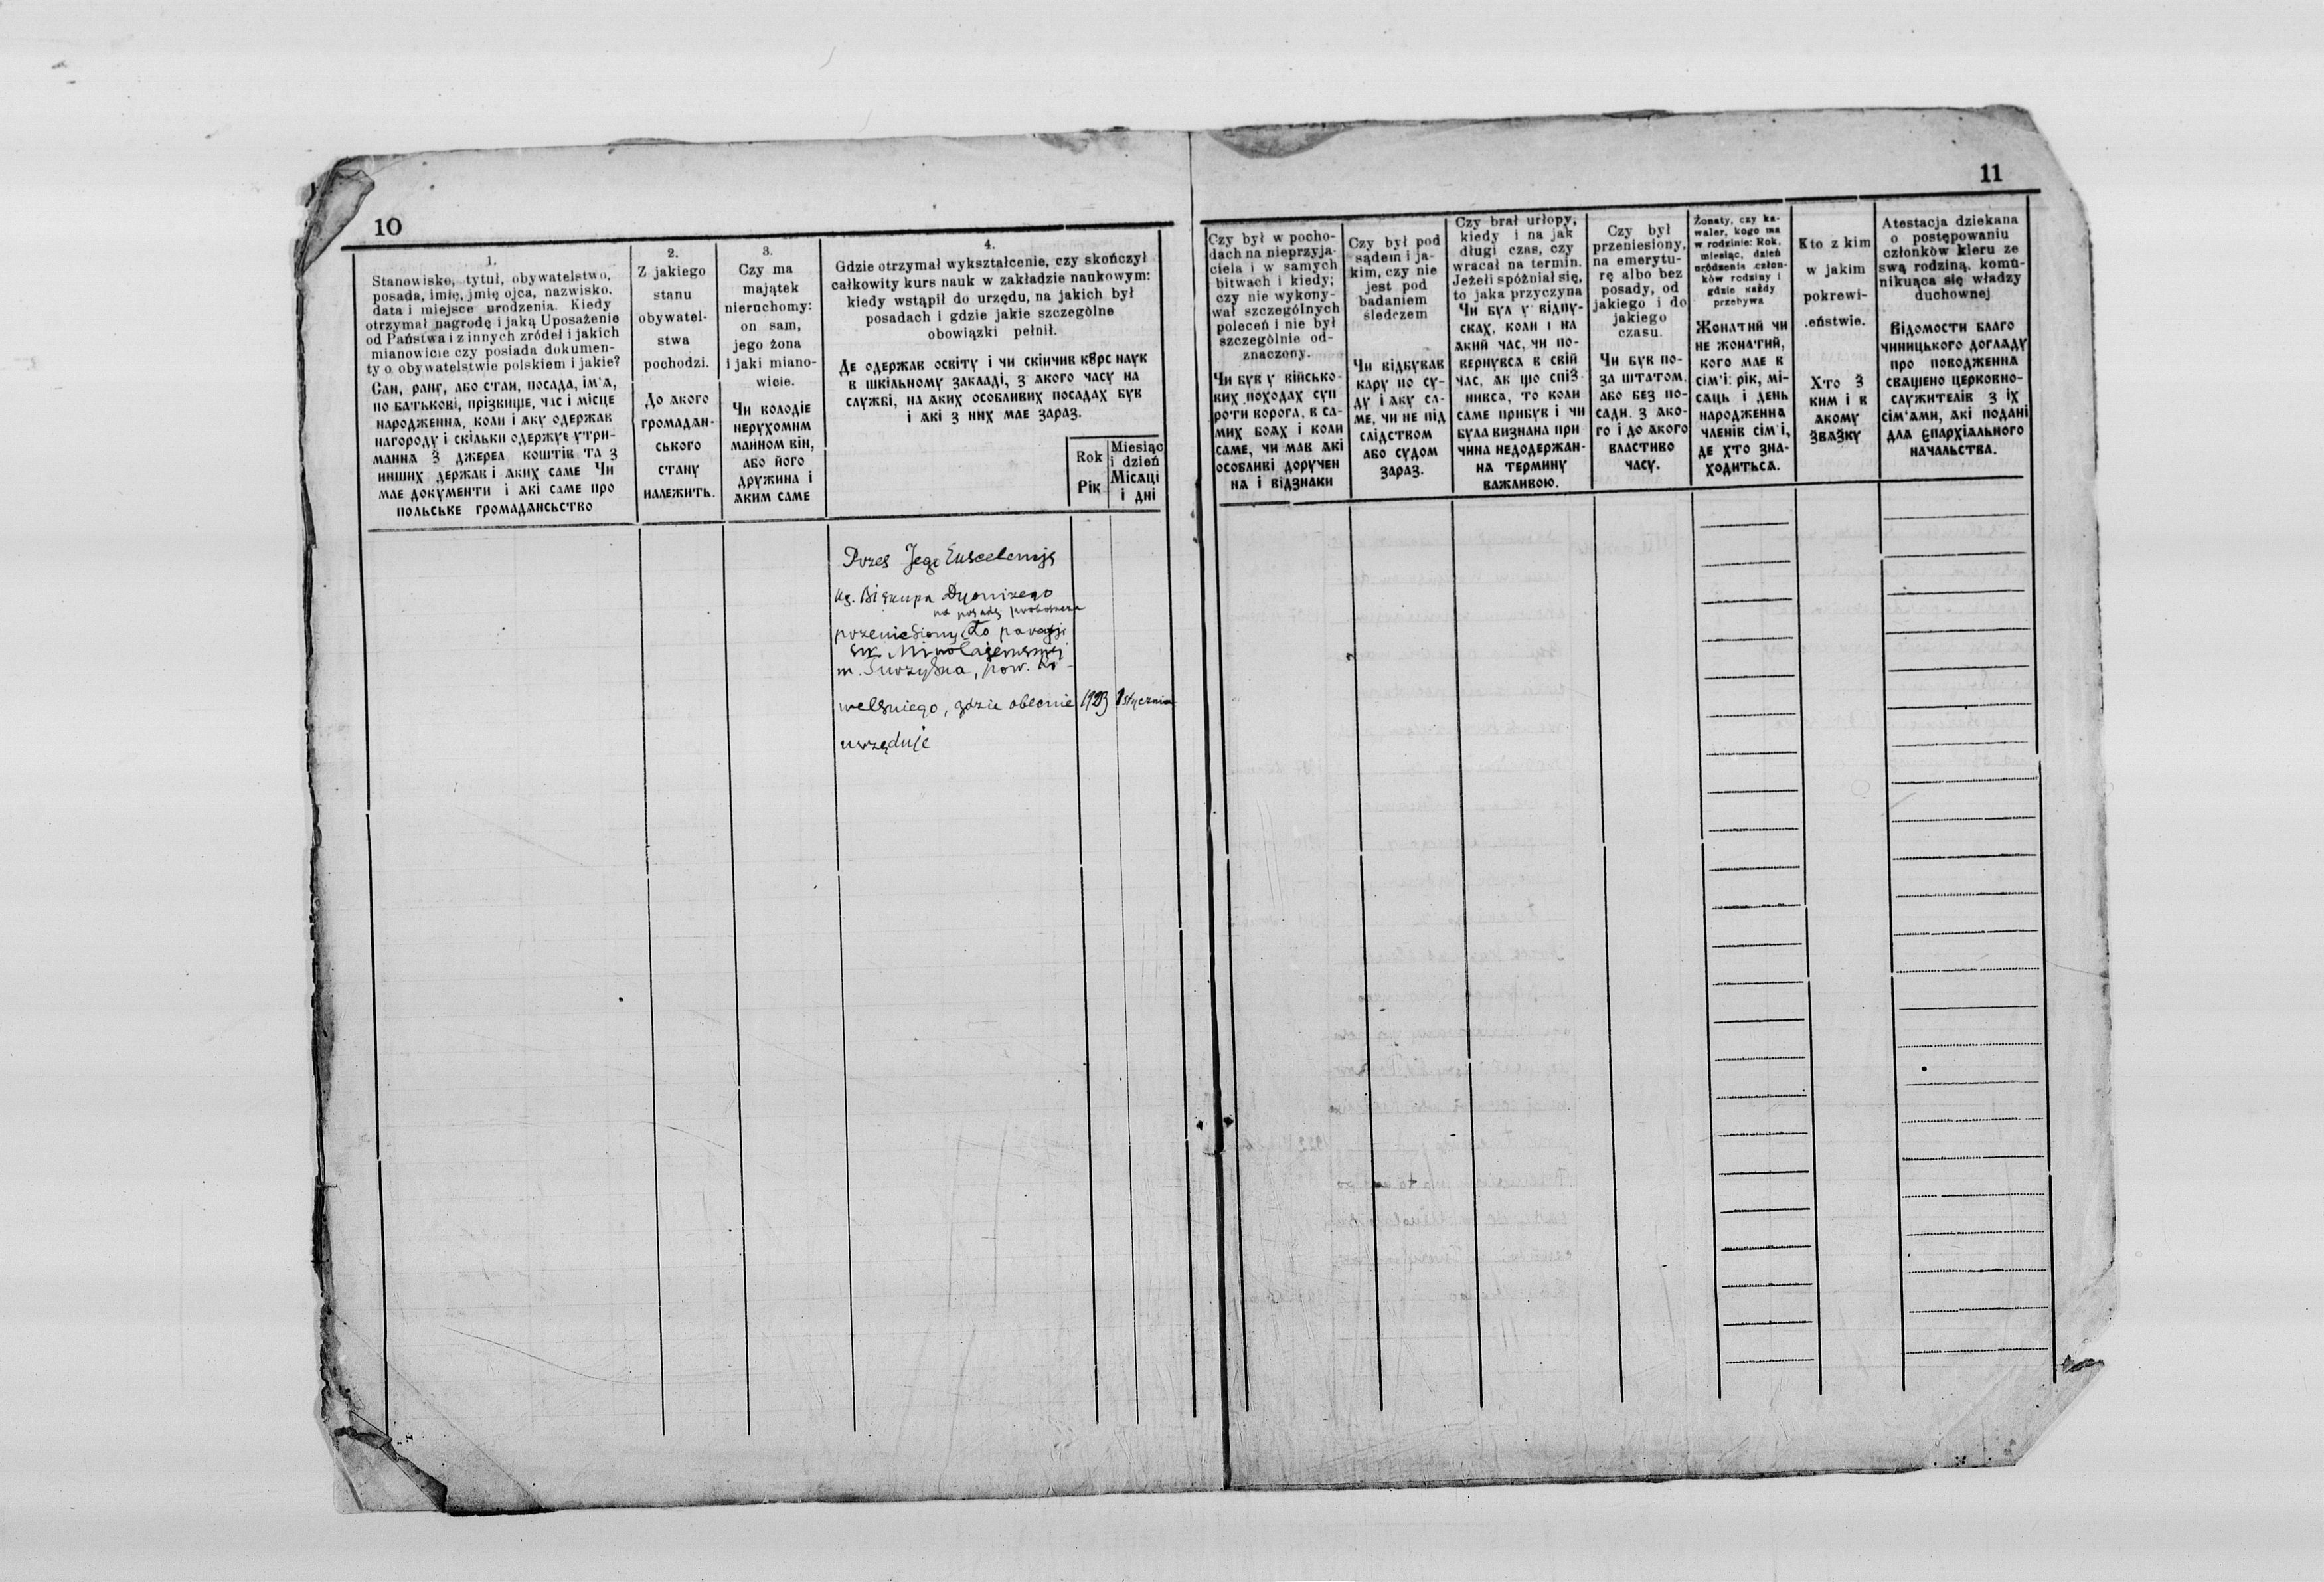 10
1.
Stanowisko, tytuł, obywatelstwo,
posada, imię, jmię ojca, nazwisko,
data i miejsce urodzenia. Kiedy
otrzymał nagrodę i jaką Uposażenie
od Państwa i z innych zródeł i jakich
mianowicie czy posiada dokumen-
ty o obywatelstwie polskiem i jakie?
Сан, рану, або стан, посада, ім'я,
по батькові, прізвище, час і місце
народження, коли і яку одержав
нагороду і скільки одержує утри-
мання з джерел коштів та з
инших держав і яких саме Чи
має документи і які саме про
польське громадансьство
2.
Z jakiego
stanu
obywatel-
stwa
pochodzi.
До якого
громадан-
ського
стану
належить.
3.
Czy ma
majątek
nieruchomy:
on sam,
jego żona
i jaki miano-
wicie.
Чи володіє
нерухомим
майном він,
або його
дружина і
яким саме
4.
Gdzie otrzymał wykształcenie, czy skończył
całkowity kurs nauk w zakładzie naukowym:
kiedy wstąpił do urzędu, na jakich był
posadach i gdzie jakie szczególne
obowiązki pełnił.
Де одержав освіту і чи скінчив кȣрс наук
в шкільному закладі, з якого часу на
службі, на яких особливих посадах був
і які з них має зараз.
Rok
Рік
Miesiąc
i dzień
Місяці
і дні
Przez Jego Euscelencję
Ks. Biskupa Dyonizego
na posadę proboszcza
przeniesiony do parafji
św. Mikołajewskiej
m. Turzyska, pow. Ko-
welskiego, gdzie obecnie 1923 1 stycznia
urzęduje
11
Czy był w pocho-
dach na nieprzyja-
ciela i w samych
bitwach i kiedy;
czy nie wykony-
wał szczególnych
poleceń i nie był
szczególnie od-
znaczony.
Чи був у військо-
вих походах суп
роти ворога, в са-
мих боях і коли
саме, чи мав які
особливі доручен
ня і відзнаки
Czy był pod
sądem i ja-
kim, czy nie
jest pod
badaniem
śledczem
Чи відбував
кару по су-
ду і яку са-
ме, чи не під
слідством
або судом
зараз.
Czy brał urlopy,
kiedy i na jak
długi czas, czy
wracał na termin.
Jeżeli spóźniał się,
to jaka przyczyna
Чи був у відпу-
сках, коли і на
який час, чи по-
вернувся в свій
час, як що спіз-
нився, то коли
саме прибув і чи
була визнана при
чина недодержан-
ня термину
важливою.
Czy był
przeniesiony,
na emerytu-
rę albo bez
posady, od
jakiego i do
jakiego
czasu.
Чи був по-
за штатом,
або без по-
сади, з яко-
го і до якого
властиво
часу.
Żonaty, czy ka-
waler, kogo ma
w rodzinie: Rok,
miesiąc, dzień
uródzenia człon-
ków rodziny i
gdzie każdy
przebywa
Жонатий чи
не жонатий,
кого має в
сім'ї: рік, мі-
саць і день
народження
членів сім'ї,
де хто зна-
ходиться.
Kto z kim
w jakim
pokrewi-
eństwie.
Хто з
ким і в
якому
звязку
Atestacja dziekana
o postępowaniu
członków kleru ze
swą rodziną, komu-
nikuąca się władzy
duchownej
Відомости благо
чинницького догляду
про поводження
священо церковно-
служителів з їх
сім'ями, які подані
для єпархіального
начальства.